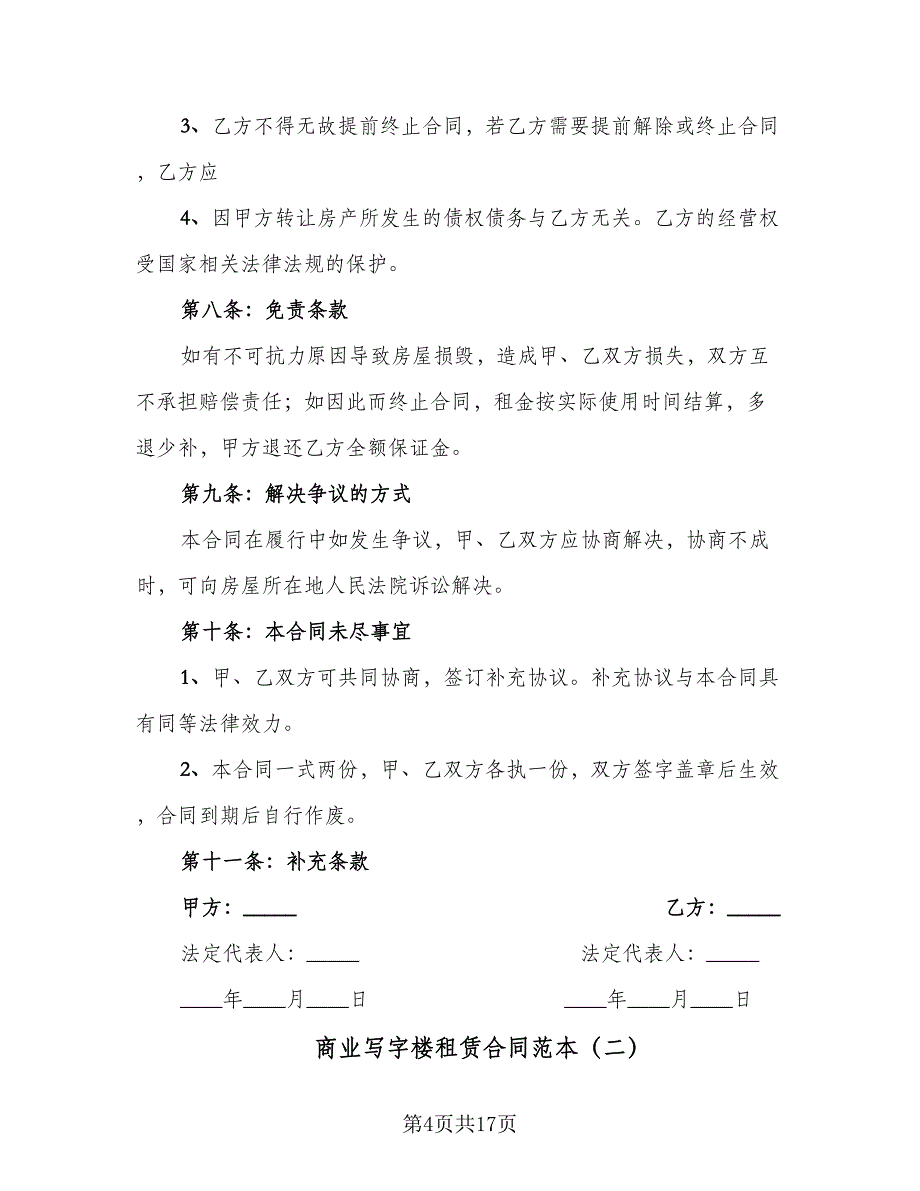 3、乙方不得无故提前终止合同，若乙方需要提前解除或终止合同
，乙方应
4、因甲方转让房产所发生的债权债务与乙方无关。乙方的经营权
受国家相关法律法规的保护。
第八条：免责条款
如有不可抗力原因导致房屋损毁，造成甲、乙双方损失，双方互
不承担赔偿责任；如因此而终止合同，租金按实际使用时间结算，多
退少补，甲方退还乙方全额保证金。
第九条：解决争议的方式
本合同在履行中如发生争议，甲、乙双方应协商解决，协商不成
时，可向房屋所在地人民法院诉讼解决。
第十条：本合同未尽事宜
1、甲、乙双方可共同协商，签订补充协议。补充协议与本合同具
有同等法律效力。
2、本合同一式两份，甲、乙双方各执一份，双方签字盖章后生效
，合同到期后自行作废。
第十一条：补充条款
甲方：_____ 乙方：_____
法定代表人：_____ 法定代表人：_____
____年____月____日 ____年____月____日
商业写字楼租赁合同范本（二）
第4页共17页